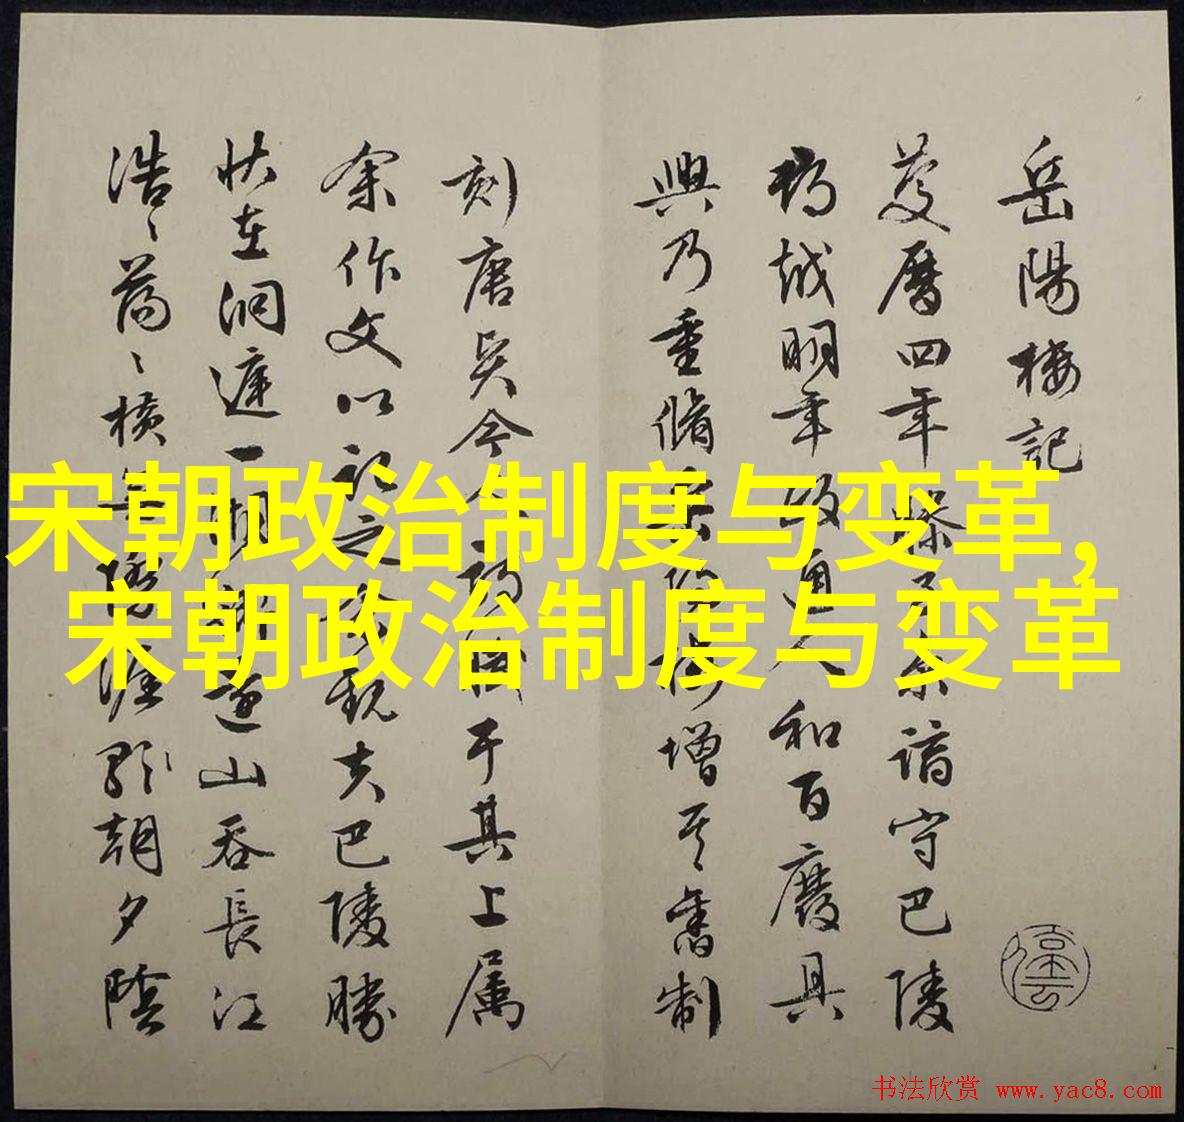 岳陽樓記
慶曆四年滕子京謫守巴陵
郡越明年政通人和百廢具
興乃重脩岳陽樓增其舊制
刻唐賢今人詩賦于其上属
余作文以記之予觀夫巴陵勝
狀在洞庭一湖銜遠山吞長江
浩〻蕩〻橫無際涯朝夕陰
宋朝政治制度与变革,
宋朝政治制度与变革
书法欣赏 www.yac8.com